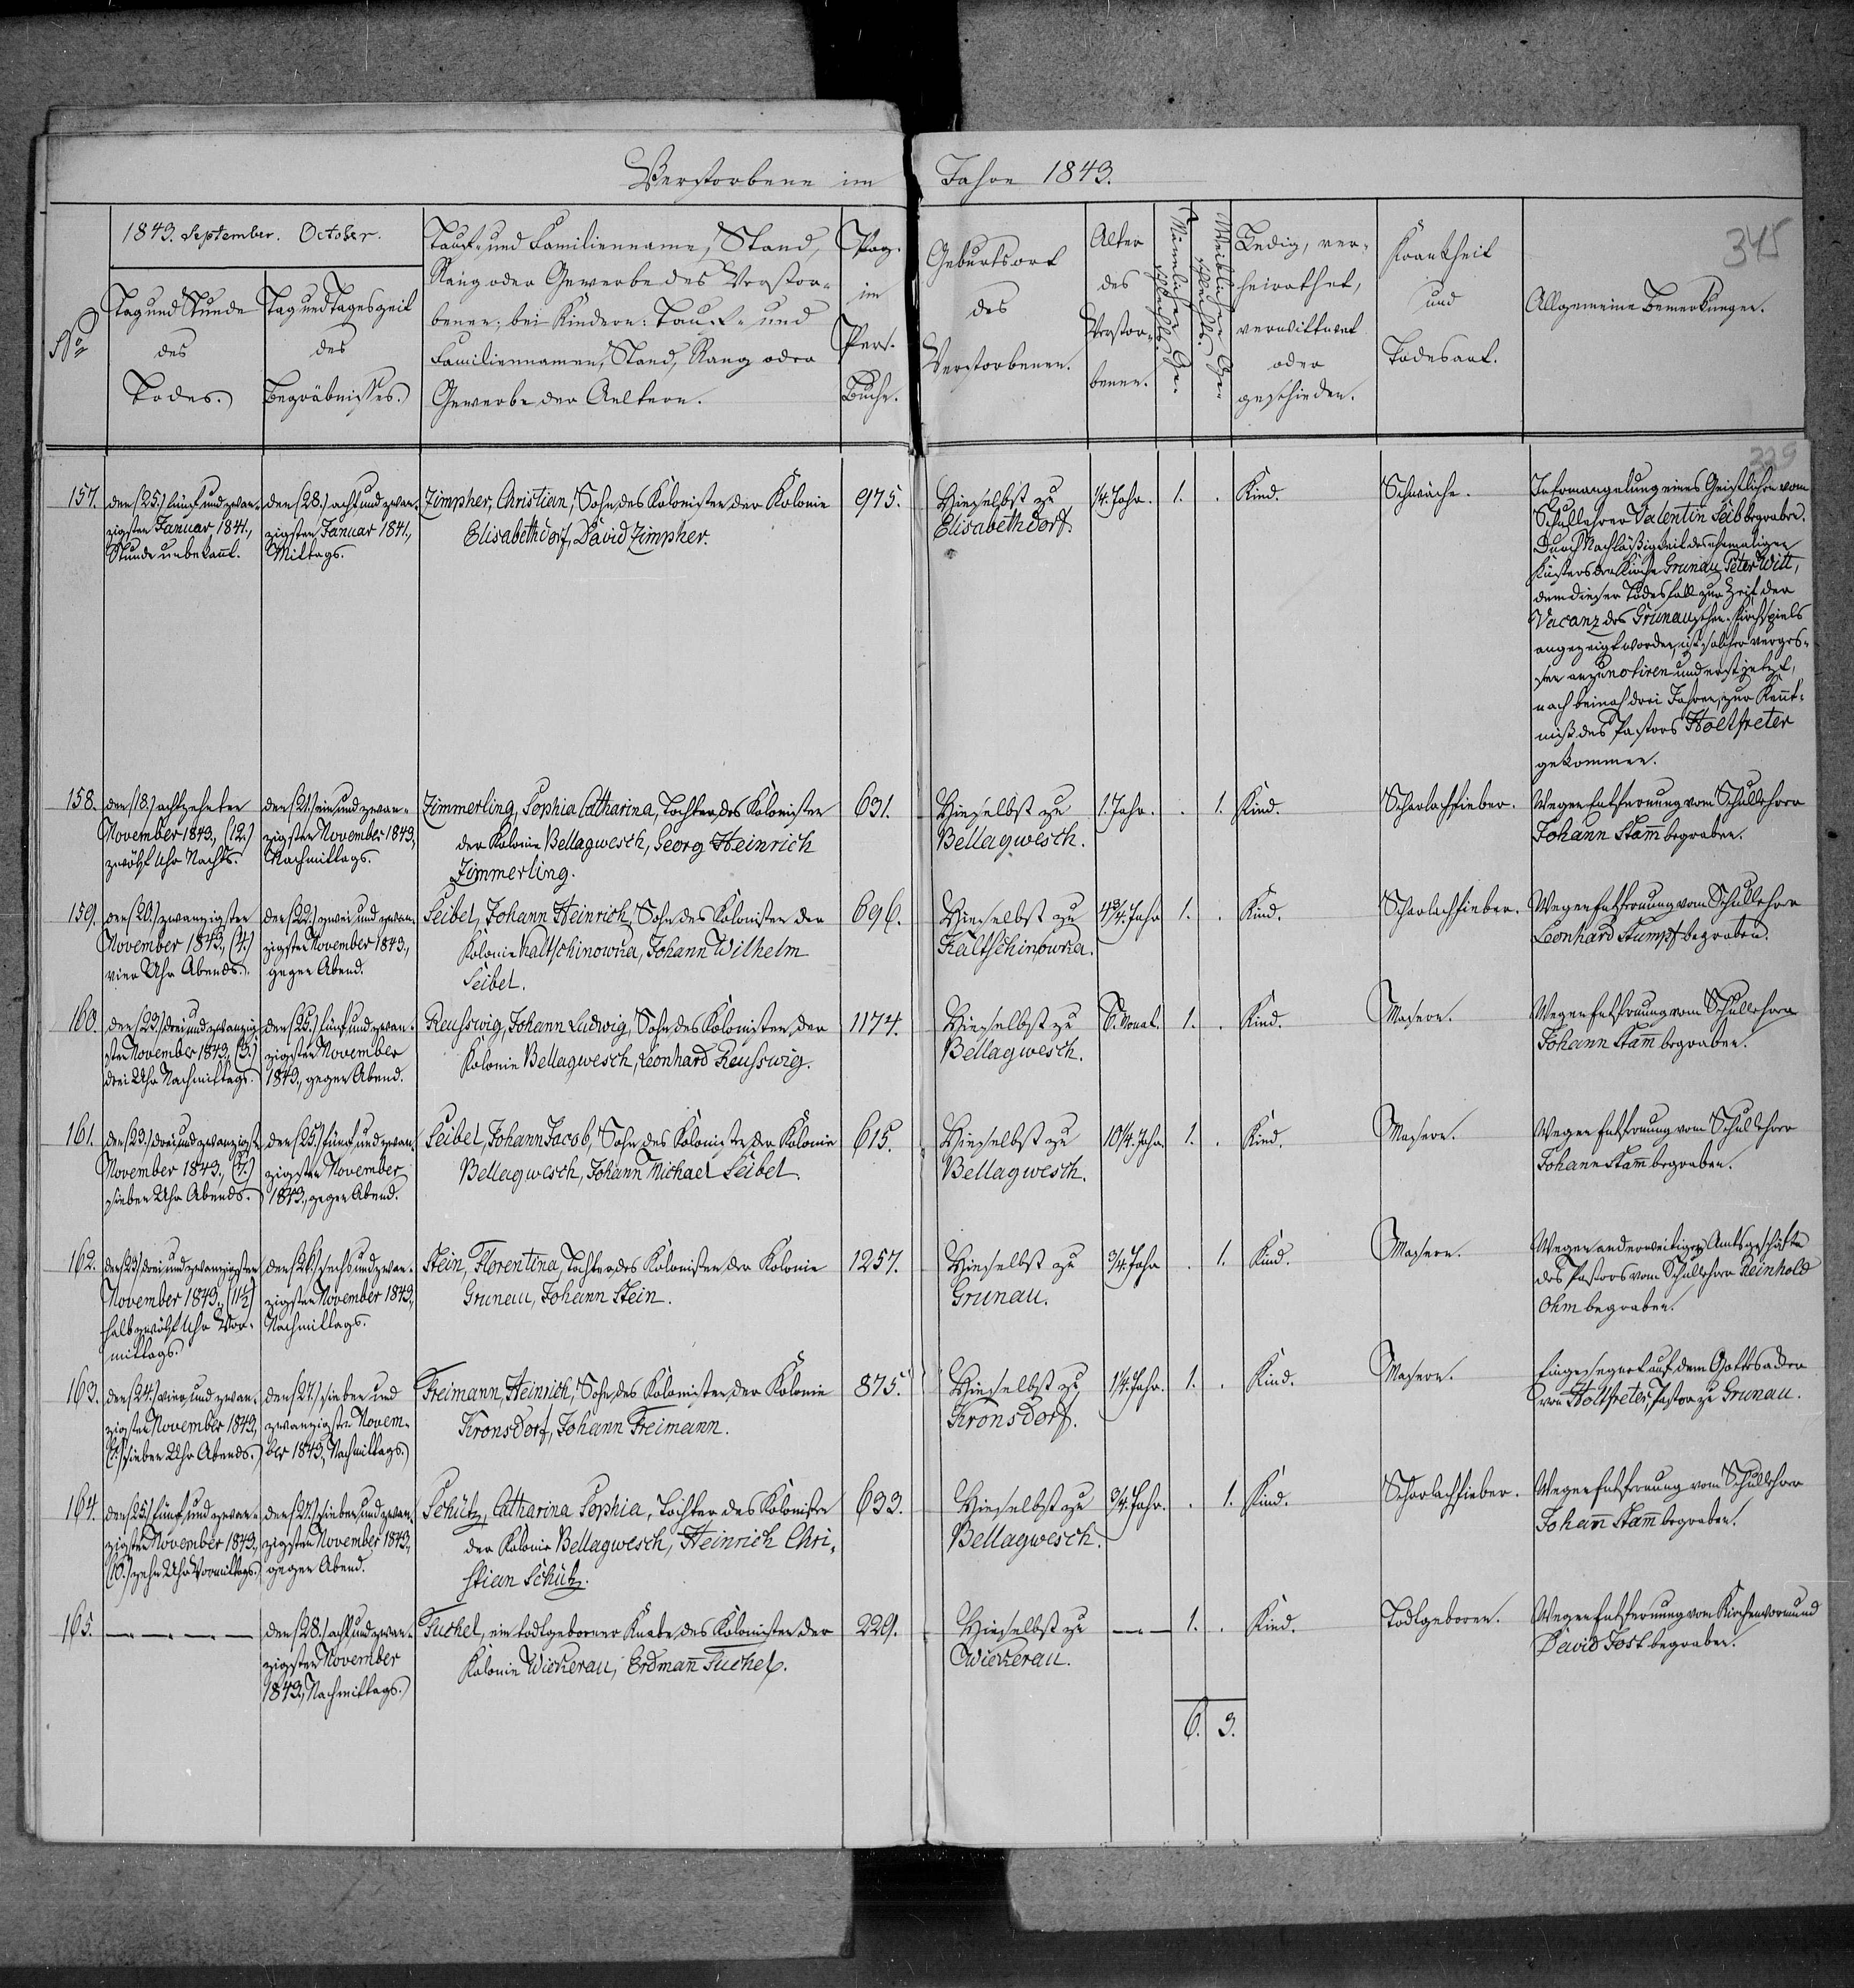 Verstorbene im Jahre 1843.
345
1843. September. October.
No
Tag und Stunde
des
Todes.
Tag und Tageszeit
des
Begräbnisses.
Tauf- und Familienname, Stand,
Rang oder Gewerbe des Verstor-
benen; bei Kindern: Tauf- und
Familiennamen, Stand, Rang oder
Gewerbe der Aeltern.
Pag.
im
Pers.
Buche.
Geburtsort
des
Verstorbenen.
Alter
des
Verstor-
benen.
Männlichen Ge-
schlechts.
Weiblichen Ge-
schlechts.
Ledig, ver-
heirathet,
verwittwet
oder
geschieden.
Krankheit
und
Todesart.
Allgemeine Bemerkungen.
329
157.
den (25.) fünf und zwan-
zigsten Januar 1841.,
Stunde unbekannt.
den (28.) acht und zwan-
zigsten Januar 1841.,
Mittags.
Zimpher, Christian, Sohn des Kolonisten der Kolonie
Elisabethdorf, David Zimpher.
975.
Hieselbst zu
Elisabethdorf.
1/4. Jahr.
1.
.
Kind.
Schwäche.
In Ermangelung eines Geistlichen vom
Schullehrer Valentin Leib begraben.
Durch Nachläßigkeit des ehemaligen
Küsters der Kirche Grunau Peter Witt,
dem dieser Todesfall zur Zeit der
Vacanz des Grunauschen Kirchspiels
angezeigt worden, ist solcher verges-
sen anzunotiren und erst jetzt,
nach beinah drei Jahren, zur Kennt-
niß des Pastors Holtfreter
gekommen.
158.
den (18.) achtzehnten
November 1843., (12.)
zwölf Uhr Nachts.
den (21.) ein und zwan-
zigsten November 1843,
Nachmittags.
Zimmerling, Sophia Catharina, Tochter des Kolonisten
der Kolonie Bellagwesch, Georg Heinrich
Zimmerling.
631.
Hieselbst zu
Bellagwesch.
1. Jahr.
.
1.
Kind.
Scharlachfieber.
Wegen Entfernung vom Schullehrer
Johann Stam̄ begraben.
159.
den (20.) zwanzigsten
November 1843, (4.)
vier Uhr Abends.
den (22.) zwei und zwan-
zigsten November 1843,
gegen Abend.
Seibel, Johann Heinrich, Sohn des Kolonisten der
Kolonie Kaltschinowka, Johann Wilhelm
Seibel.
696.
Hieselbst zu
Kaltschinowka.
4 3/4. Jahr
1.
.
Kind.
Scharlachfieber.
Wegen Entfernung vom Schullehrer
Leonhard Stumpf begraben.
160.
den (23.) drei und zwanzig-
sten November 1843, (3.)
drei Uhr Nachmittags.
den (25.) fünf und zwan-
zigsten November
1843., gegen Abend.
Reusswig, Johann Ludwig, Sohn des Kolonisten der
Kolonie Bellagwesch, Leonhard Reusswig.
1174.
Hieselbst zu
Bellagwesch.
6. Monat.
1.
.
Kind.
Masern.
Wegen Entfernung vom Schullehrer
Johann Stam̄ begraben.
161.
den (23.) drei und zwanzigst.
November 1843., (7.)
sieben Uhr Abends.
den (25.) fünf und zwan-
zigsten November
1843., gegen Abend.
Seibel, Johann Jacob, Sohn des Kolonisten der Kolonie
Bellagwesch, Johann Michael Seibel.
615.
Hieselbst zu
Bellagwesch.
10 1/4. Jahr.
1.
.
Kind.
Masern.
Wegen Entfernung vom Schullehrer
Johann Stam̄ begraben.
162.
den (23.) drei und zwanzigsten
November 1843., (11½)
halb zwölf Uhr Vor-
mittags.
den (26.) sechs und zwan-
zigsten November 1843,
Nachmittags.
Stein, Florentina, Tochter des Kolonisten der Kolonie
Grunau, Johann Stein.
1257.
Hieselbst zu
Grunau.
3/4. Jahr
.
1.
Kind.
Masern.
Wegen anderweitiger Amtsgeschäfte
des Pastors vom Schullehrer Reinhold
Ohm begraben.
163.
den (24.) vier und zwan-
zigsten November 1843,
(7.) sieben Uhr Abends.
den (27.) sieben und
zwanzigsten Novem-
ber 1843, Nachmittags.
Freimann, Heinrich, Sohn des Kolonisten der Kolonie
Kronsdorf, Johann Freimann.
875.
Hieselbst zu
Kronsdorf.
1/4. Jahr.
1.
.
Kind.
Masern.
Eingesegnet auf dem Gottesacker
von Holtfreter, Pastor zu Grunau.
164.
den (25.) fünf und zwan-
zigsten November 1843,
(10.) zehn Uhr Vormittags.
den (27.) sieben und zwan-
zigsten November 1843,
gegen Abend.
Schütz, Catharina Sophia, Tochter des Kolonisten
der Kolonie Bellagwesch, Heinrich Chri-
stian Schütz.
633.
Hieselbst zu
Bellagwesch.
3/4. Jahr.
.
1.
Kind.
Scharlachfieber.
Wegen Entfernung vom Schullehrer
Johan̄ Stam̄ begraben.
165.
den (28.) acht und zwan-
zigsten November
1843, Nachmittags.
Tuchel, ein todtgeborner Knabe des Kolonisten der
Kolonie Wickerau, Erdman̄ Tuchel.
229.
Hieselbst zu
Wickerau.
1.
.
Kind.
Todtgeboren.
Wegen Entfernung vom Kirchenvormund
David Jost begraben.
6. 3.